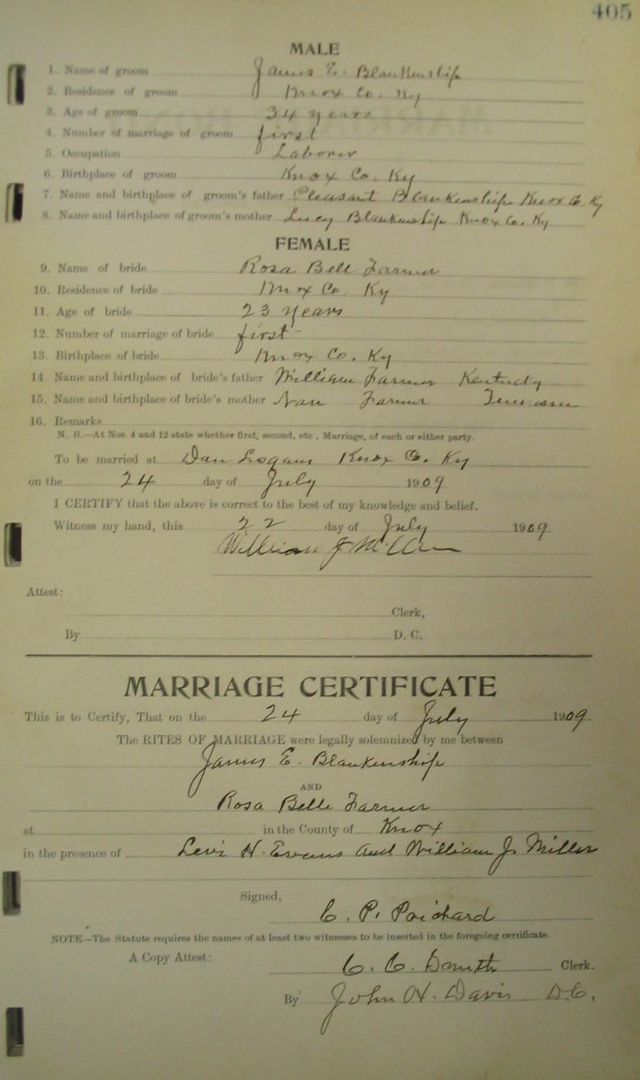 405
MALE
1. Name of groom James E. Blankenship
2. Residence of groom Knox Co. Ky
3. Age of groom 34 years
4. Number of marriage of groom first
5. Occupation Laborer
6. Birthplace of groom Knox Co. Ky
7. Name and birthplace of groom's father Pleasant Blankenship Knox Co. Ky
8. Name and birthplace of groom's mother Lucy Blankenship Knox Co. Ky
FEMALE
9. Name of bride Rosa Bell Farmer
10. Residence of bride Knox Co. Ky
11. Age of bride 23 years
12. Number of marriage of bride first
13. Birthplace of bride Knox Co. Ky
14 Name and birthplace of bride's father William Farmer Kentucky
15. Name and birthplace of bride's mother Nan Farmer Tennessee
16. Remarks
N. B.—At Nos. 4 and 12 state whether first, second, etc., Marriage, of each or either party.
To be married at Dan Logans Knox Co. Ky
on the 24 day of July 1909
I CERTIFY that the above is correct to the best of my knowledge and belief.
Witness my hand, this 22 day of July 1909
William J Miller
Attest:
Clerk,
By D. C.
MARRIAGE CERTIFICATE
This is to Certify, That on the 24 day of July 1909
The RITES OF MARRIAGE were legally solemnized by me between
James E. Blankenship
AND
Rosa Belle Farmer
at in the County of Knox
in the presence of Levi H. Evans and William J. Miller
Signed,
C. P. Prichard
NOTE—The Statute requires the names of at least two witnesses to be inserted in the foregoing certificate.
A Copy Attest: C. C. Clerk.
By John H. Davis D.C.